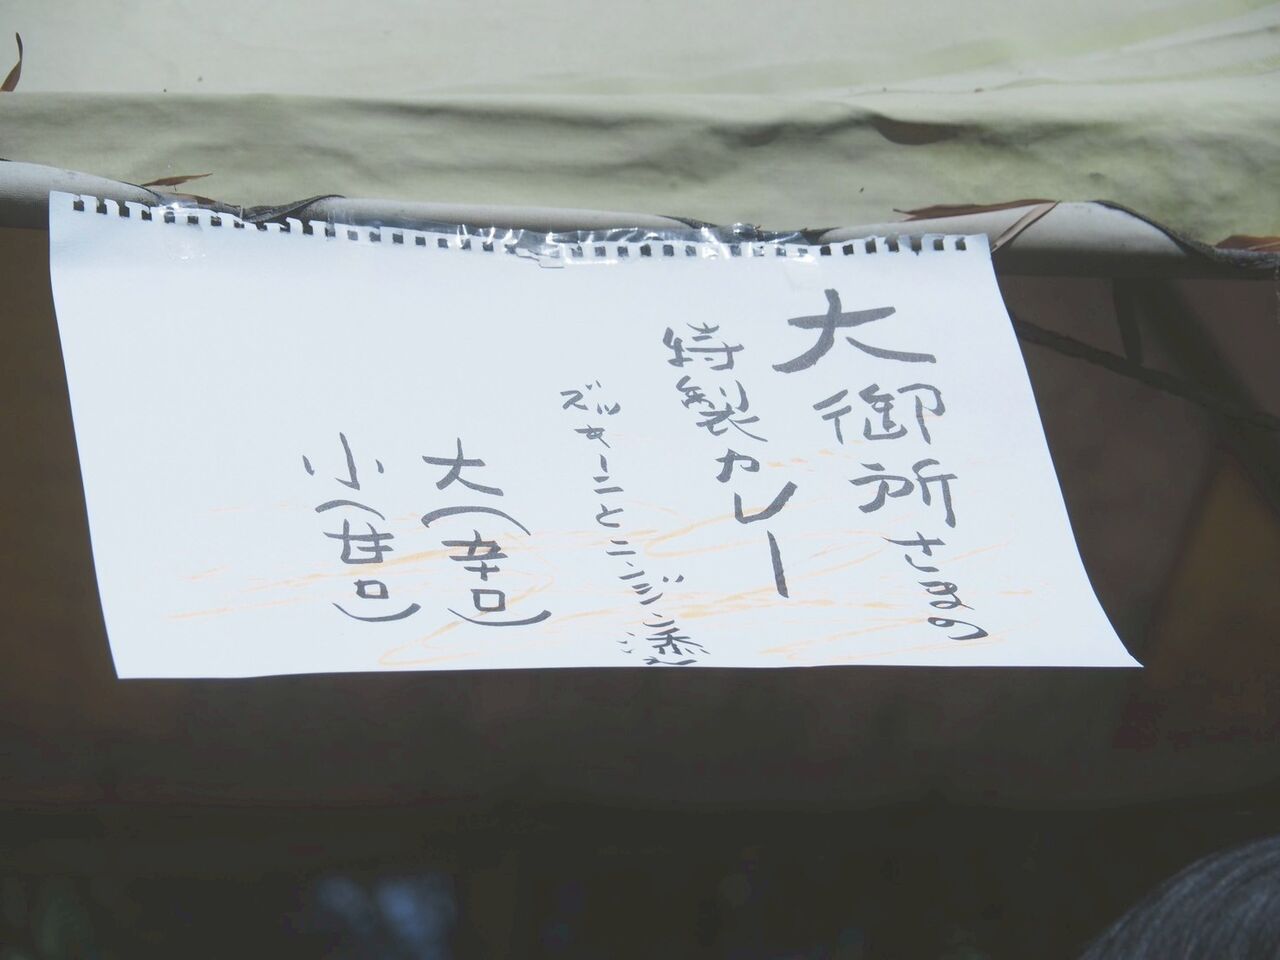 大御所さまの
特製カレー
ズッキーニとニンジン添
大(辛口)
小(甘口)